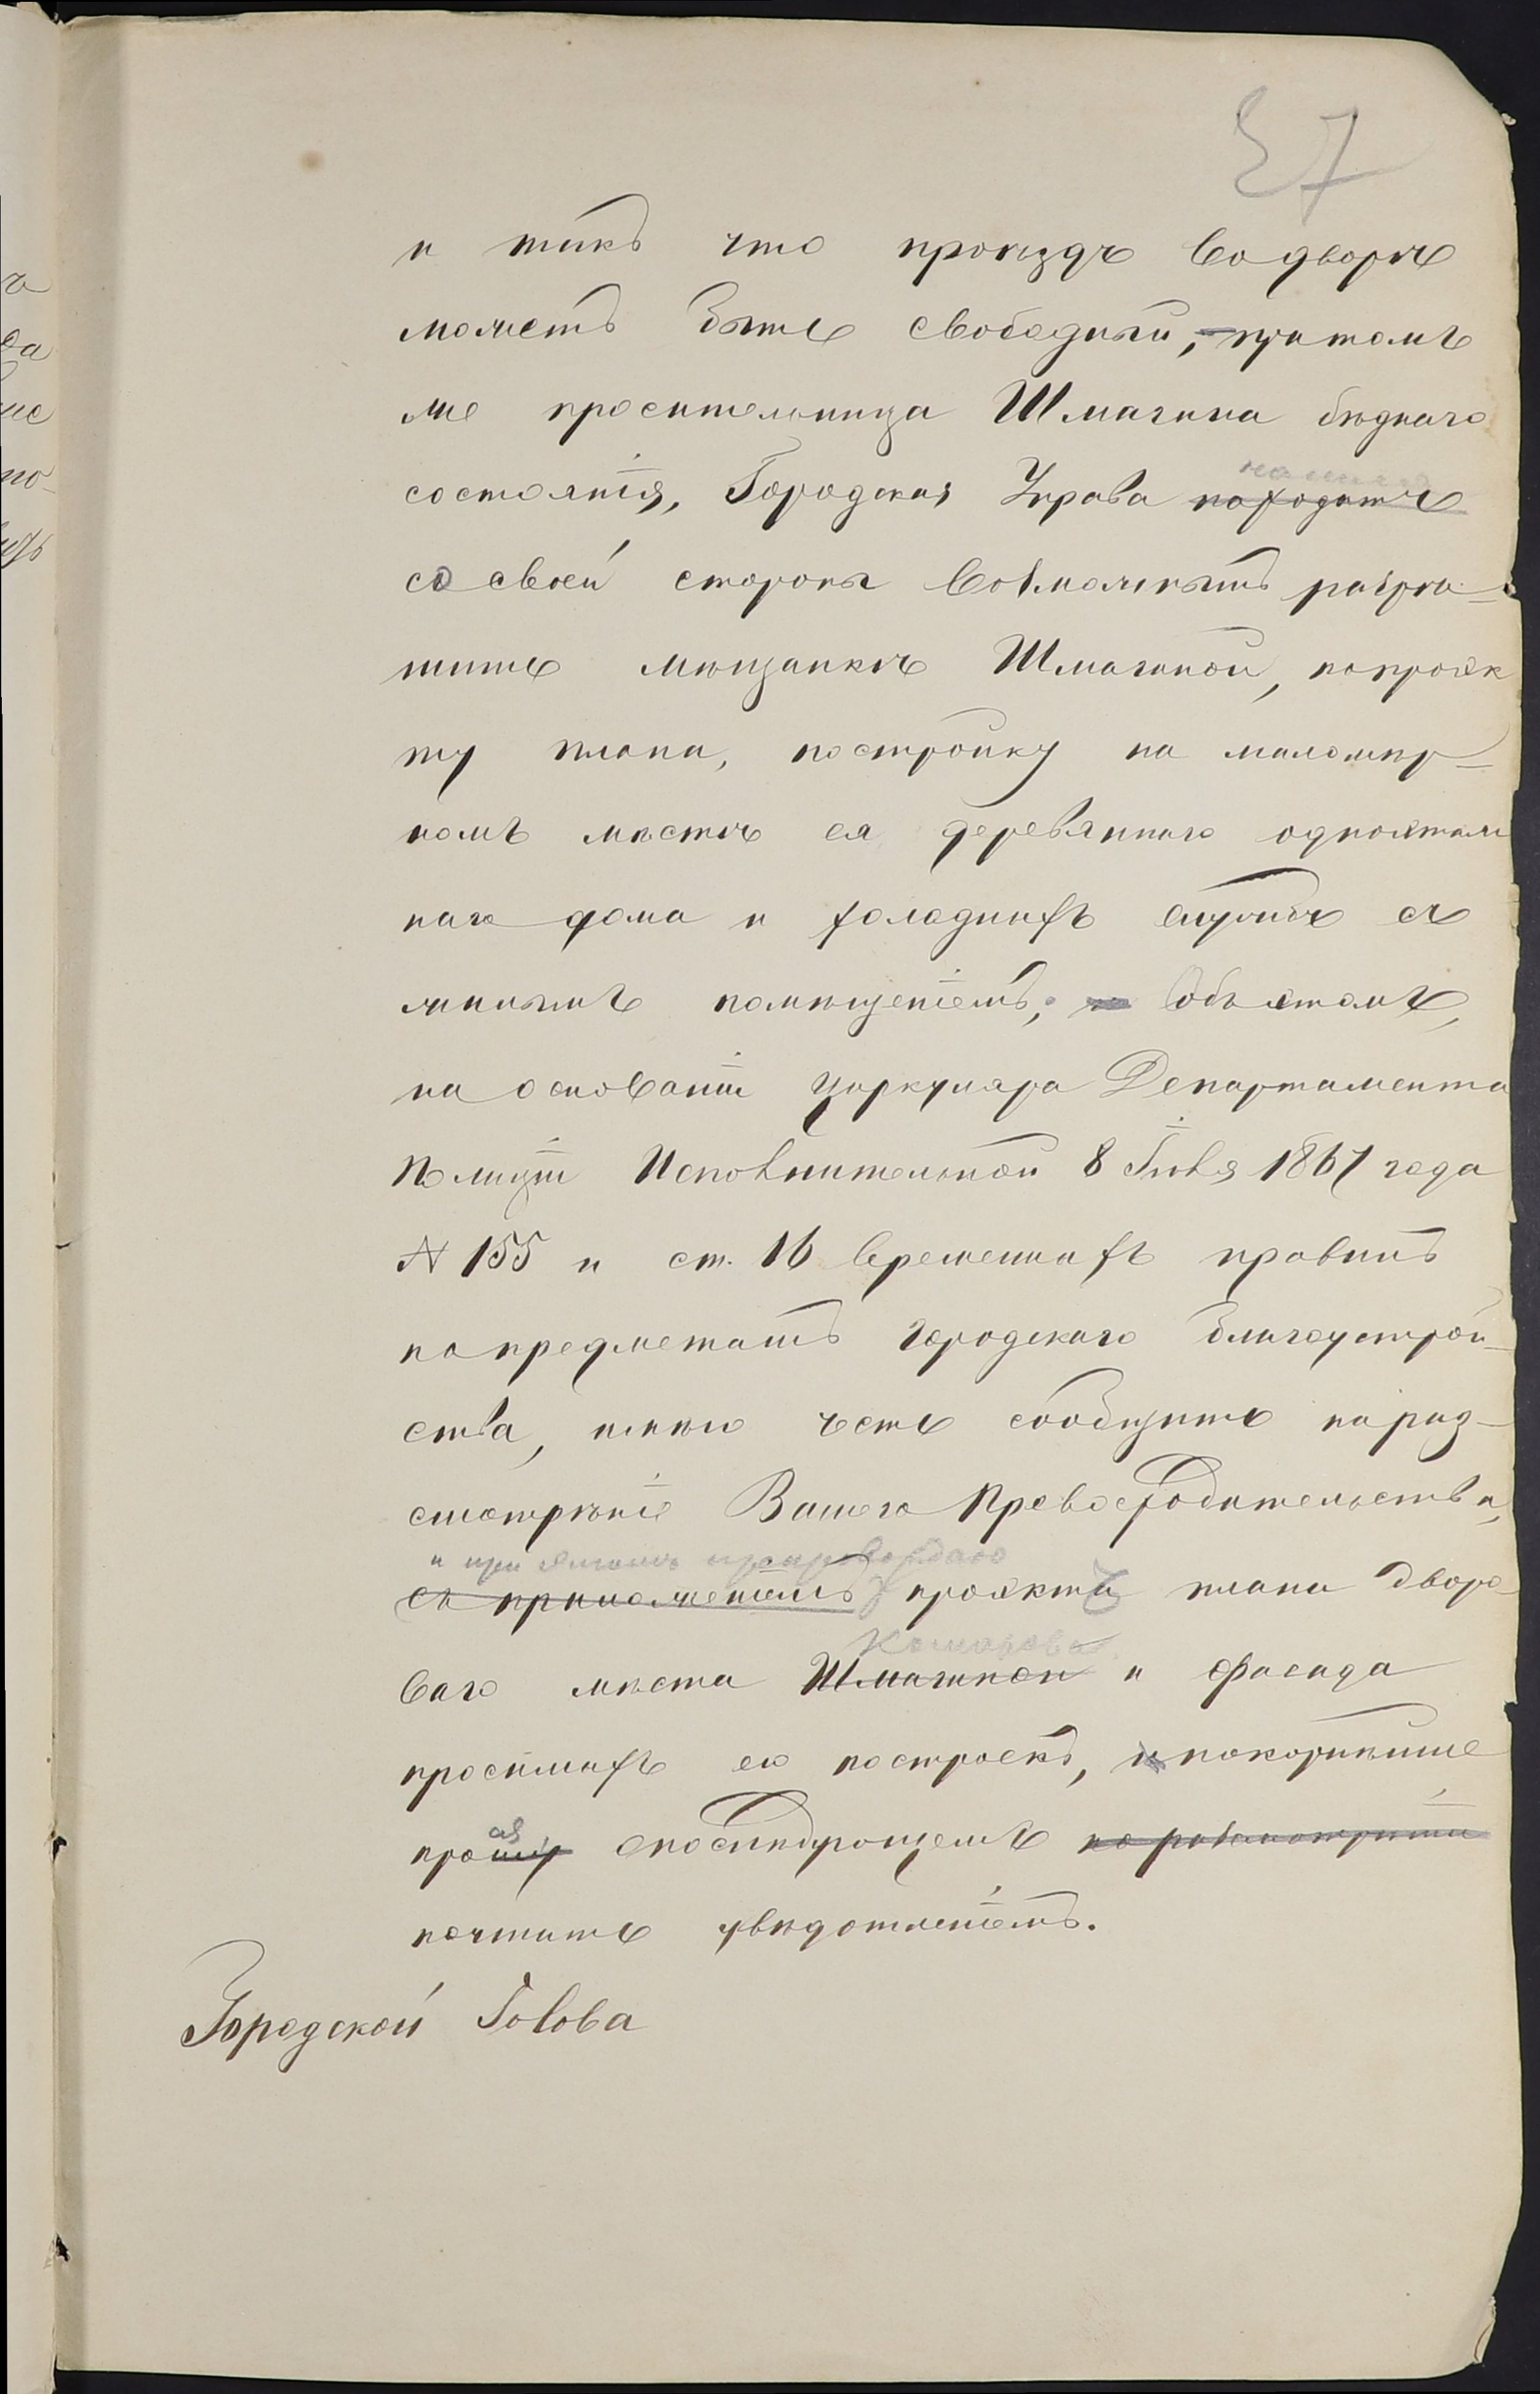 37
и такъ что проѣздъ во дворъ
можетъ быть свободный, притомъ
же просительница Шмагина бѣднаго
нашла
состоянія, Городская Управа находитъ
со своей стороны возможнымъ разрѣ-
шить мѣщанкѣ Шмагиной, по проэк
ту плана, постройку на маломѣр-
номъ мѣстѣ ея деревяннаго одноэтаж
наго дома и холодныхъ службъ съ
жилымъ помѣщеніемъ; Объ этомъ,
на основаніи циркуляра Департамента
Полиціи Исполнительной 8 Іюля 1867 года
№ 155 и ст. 16 временныхъ правилъ
по предметамъ городскаго благоустрой-
ства, имѣю честь сообщить на раз-
смотрѣніе Вашего Превосходительства,
и при этомъ препровождаю
съ приложеніемъ проэкта плана дворо
Комарова
ваго мѣста Шмагиной и фасада
просимыхъ ею построекъ, и покорнѣйше
ся
прошу о послѣдующемъ по разсмотрѣніи
почтить увѣдомленіемъ.
Городской Голова